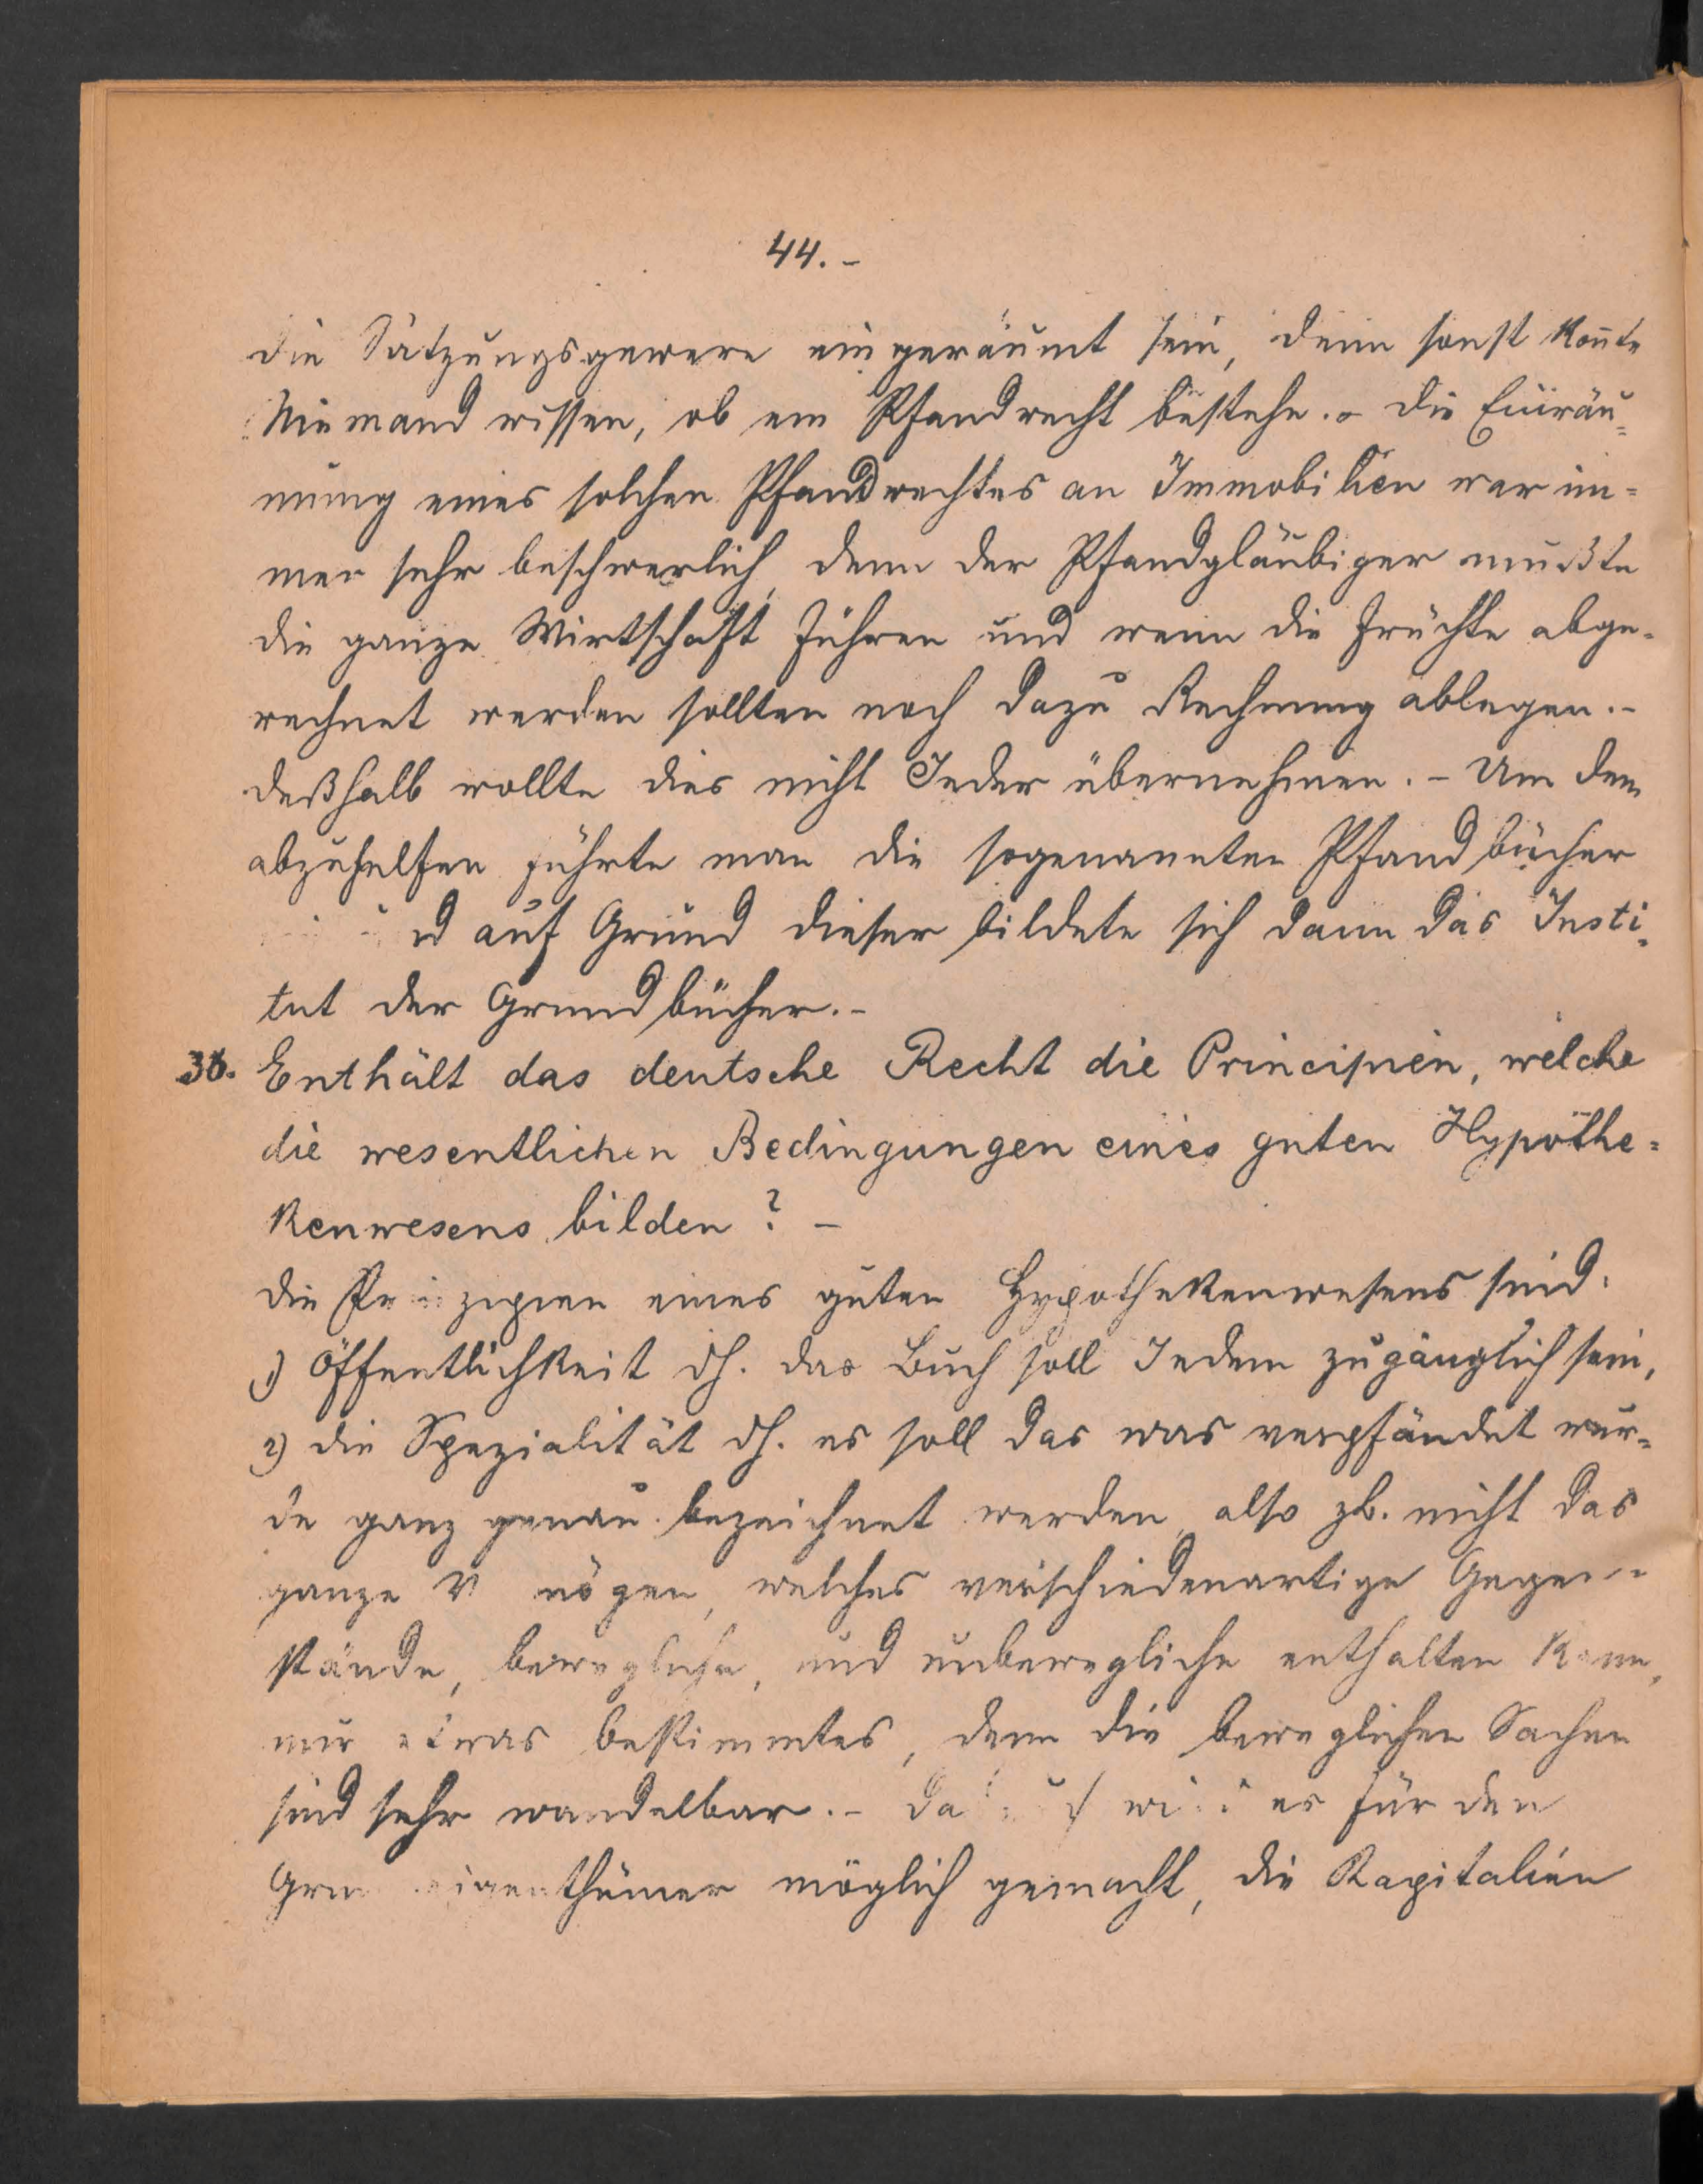 44.-
die Satzungsgewere eingeräumt sein, denn sonst kon̄te
Niemand wissen, ob ein Pfandrecht bestehe.- Die Einräu-
mung eines solchen Pfandrechtes an Immobilien war im-
mer sehr beschwerlich, denn der Pfandgläubiger mußte
die ganze Wirtschaft führen und wenn die Früchte abge-
rechnet werden sollten noch dazu Rechnung ablegen.-
deßhalb wollte dies nicht Jeder übernehmen.- Um dem
abzuhelfen führte man die sogenannten Pfandbücher
auf Grund dieser bildete sich dann das Insti-
tut der Grundbücher.-
36. Enthält das deutsche Recht die Principien, welche
die wesentlichen Bedingungen eines guten Hypothe-
kenwesens bilden? -
die Prinzipien eines guten Hypothekenwesens sind:
1) Öffentlichkeit dh. das Buch soll Jedem zugänglich sein,
2) die Spezialität dh. es soll das was verpfändet wur-
de ganz genau bezeichnet werden, also zb. nicht das
ganze welches verschiedenartige Gegen-
stände, bewegliche, und unbewegliche enthalten kann,
nur etwas bestimmtes, denn die beweglichen Sachen
sind sehr wandelbar.- es für den
möglich gemacht, die Kapitalien